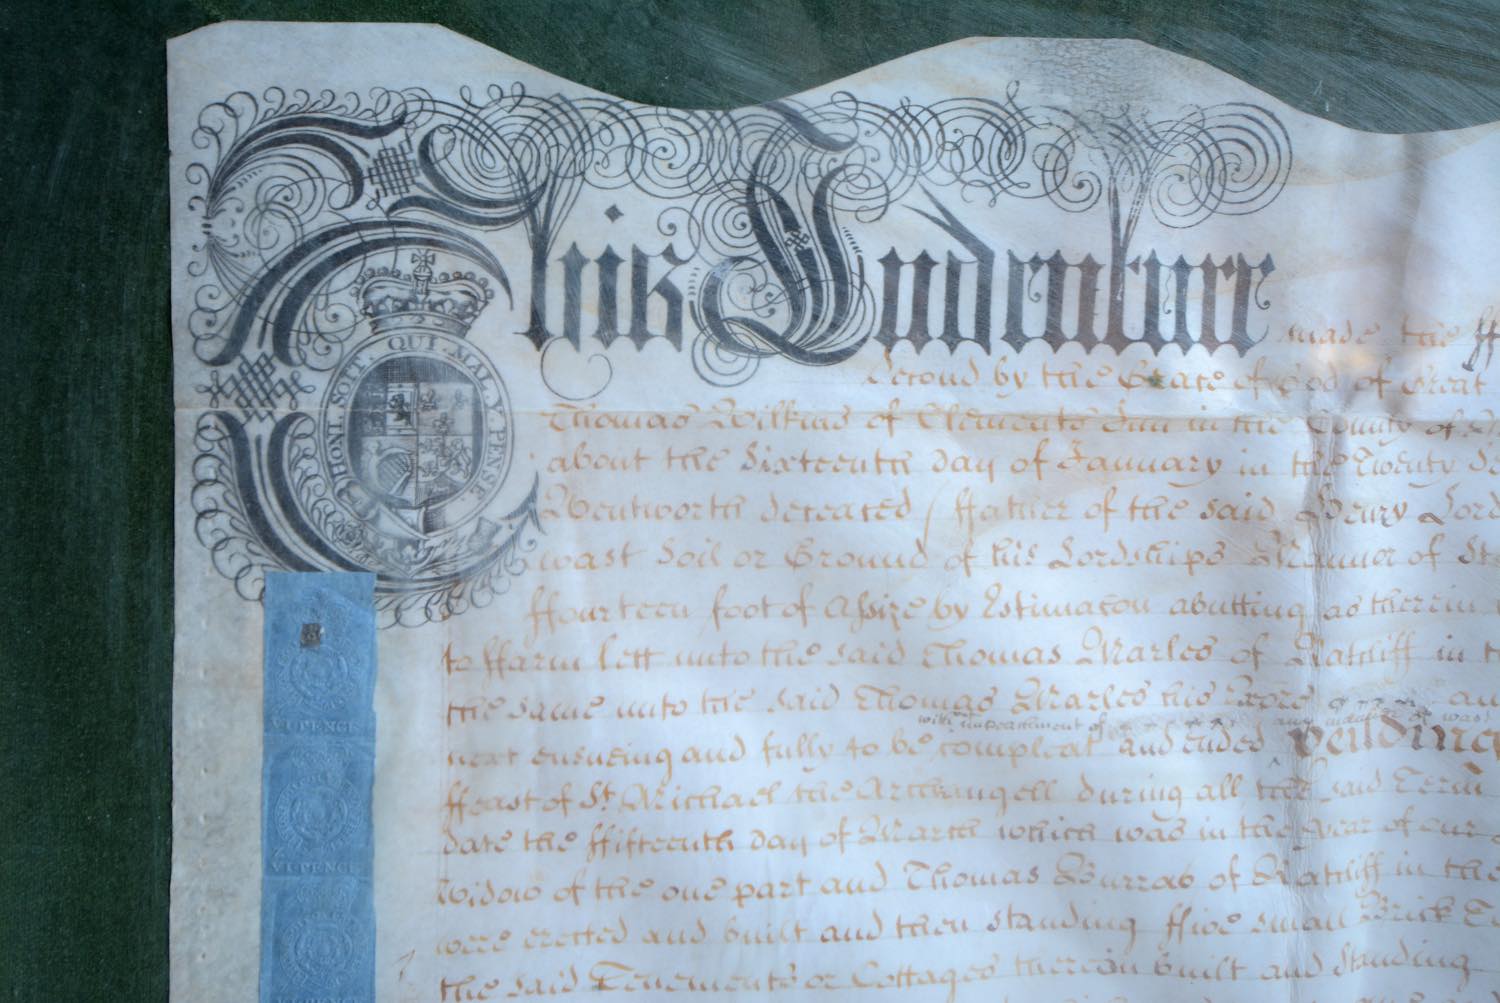 This Indenture made the
second by the Grace of God of Great
HONI. SOIT. QUI. MAL. Y. PENSE.
Thomas Wilkins of Clements Inn in the County of
about the Sixteenth day of January in the Twenty
Wentworth deceased ffather of the said Henry Lord
wast Soil or Ground of his Lordships Mannor of
ffourteen foot of Assize by Estimacon abutting as therein
to ffarm lett unto the said Thomas Marles of Ratcliff in
the same unto the said Thomas Marles his
with impeachment of any manner of wast
next ensueing and fully to be compleat and ended
ffeast of St. Michael the Archangell during all the said Term
date the ffifteenth day of March which was in the year of our
Widow of the one part and Thomas of Ratcliff in the
were erected and built and then standing ffive small Brick
the said Tenements or Cottages thereon built and standing
VI PENCE
VI PENCE